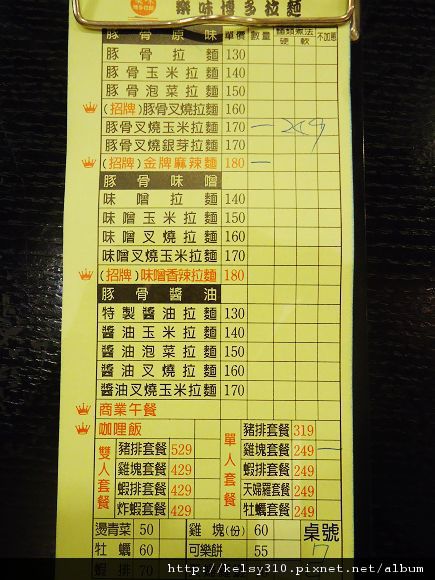 樂味博多拉麵
豚骨原味 單價 數量 麵類煮法 硬 軟 不加蔥
豚骨拉麵 130
豚骨玉米拉麵 140
豚骨泡菜拉麵 150
(招牌)豚骨叉燒拉麵 160
豚骨叉燒玉米拉麵 170 一
豚骨叉燒銀芽拉麵 170
(招牌)金牌麻辣麵 180 一
豚骨味噌
味噌拉麵 140
味噌玉米拉麵 150
味噌叉燒拉麵 160
味噌叉燒玉拉麵 170
(招牌)味噌香辣拉麵 180
豚骨醬油
特製醬油拉麵 130
醬油玉米拉麵 140
醬油泡菜拉麵 150
醬油叉燒拉麵 160
醬油叉燒玉米拉麵 170
商業午餐
咖哩飯
雙人套餐
豬排套餐 529
雞塊套餐 429
蝦排套餐 429
炸蝦套餐 429
單人套餐
豬排套餐 319
雞塊套餐 249 一
蝦排套餐 249
天婦羅套餐 249
牡蠣套餐 249
燙青菜 50 雞塊(份) 60 桌號
牡蠣 60 可樂餅 55 7
蝦排 70
http://kelsy310.pixnet.net/album